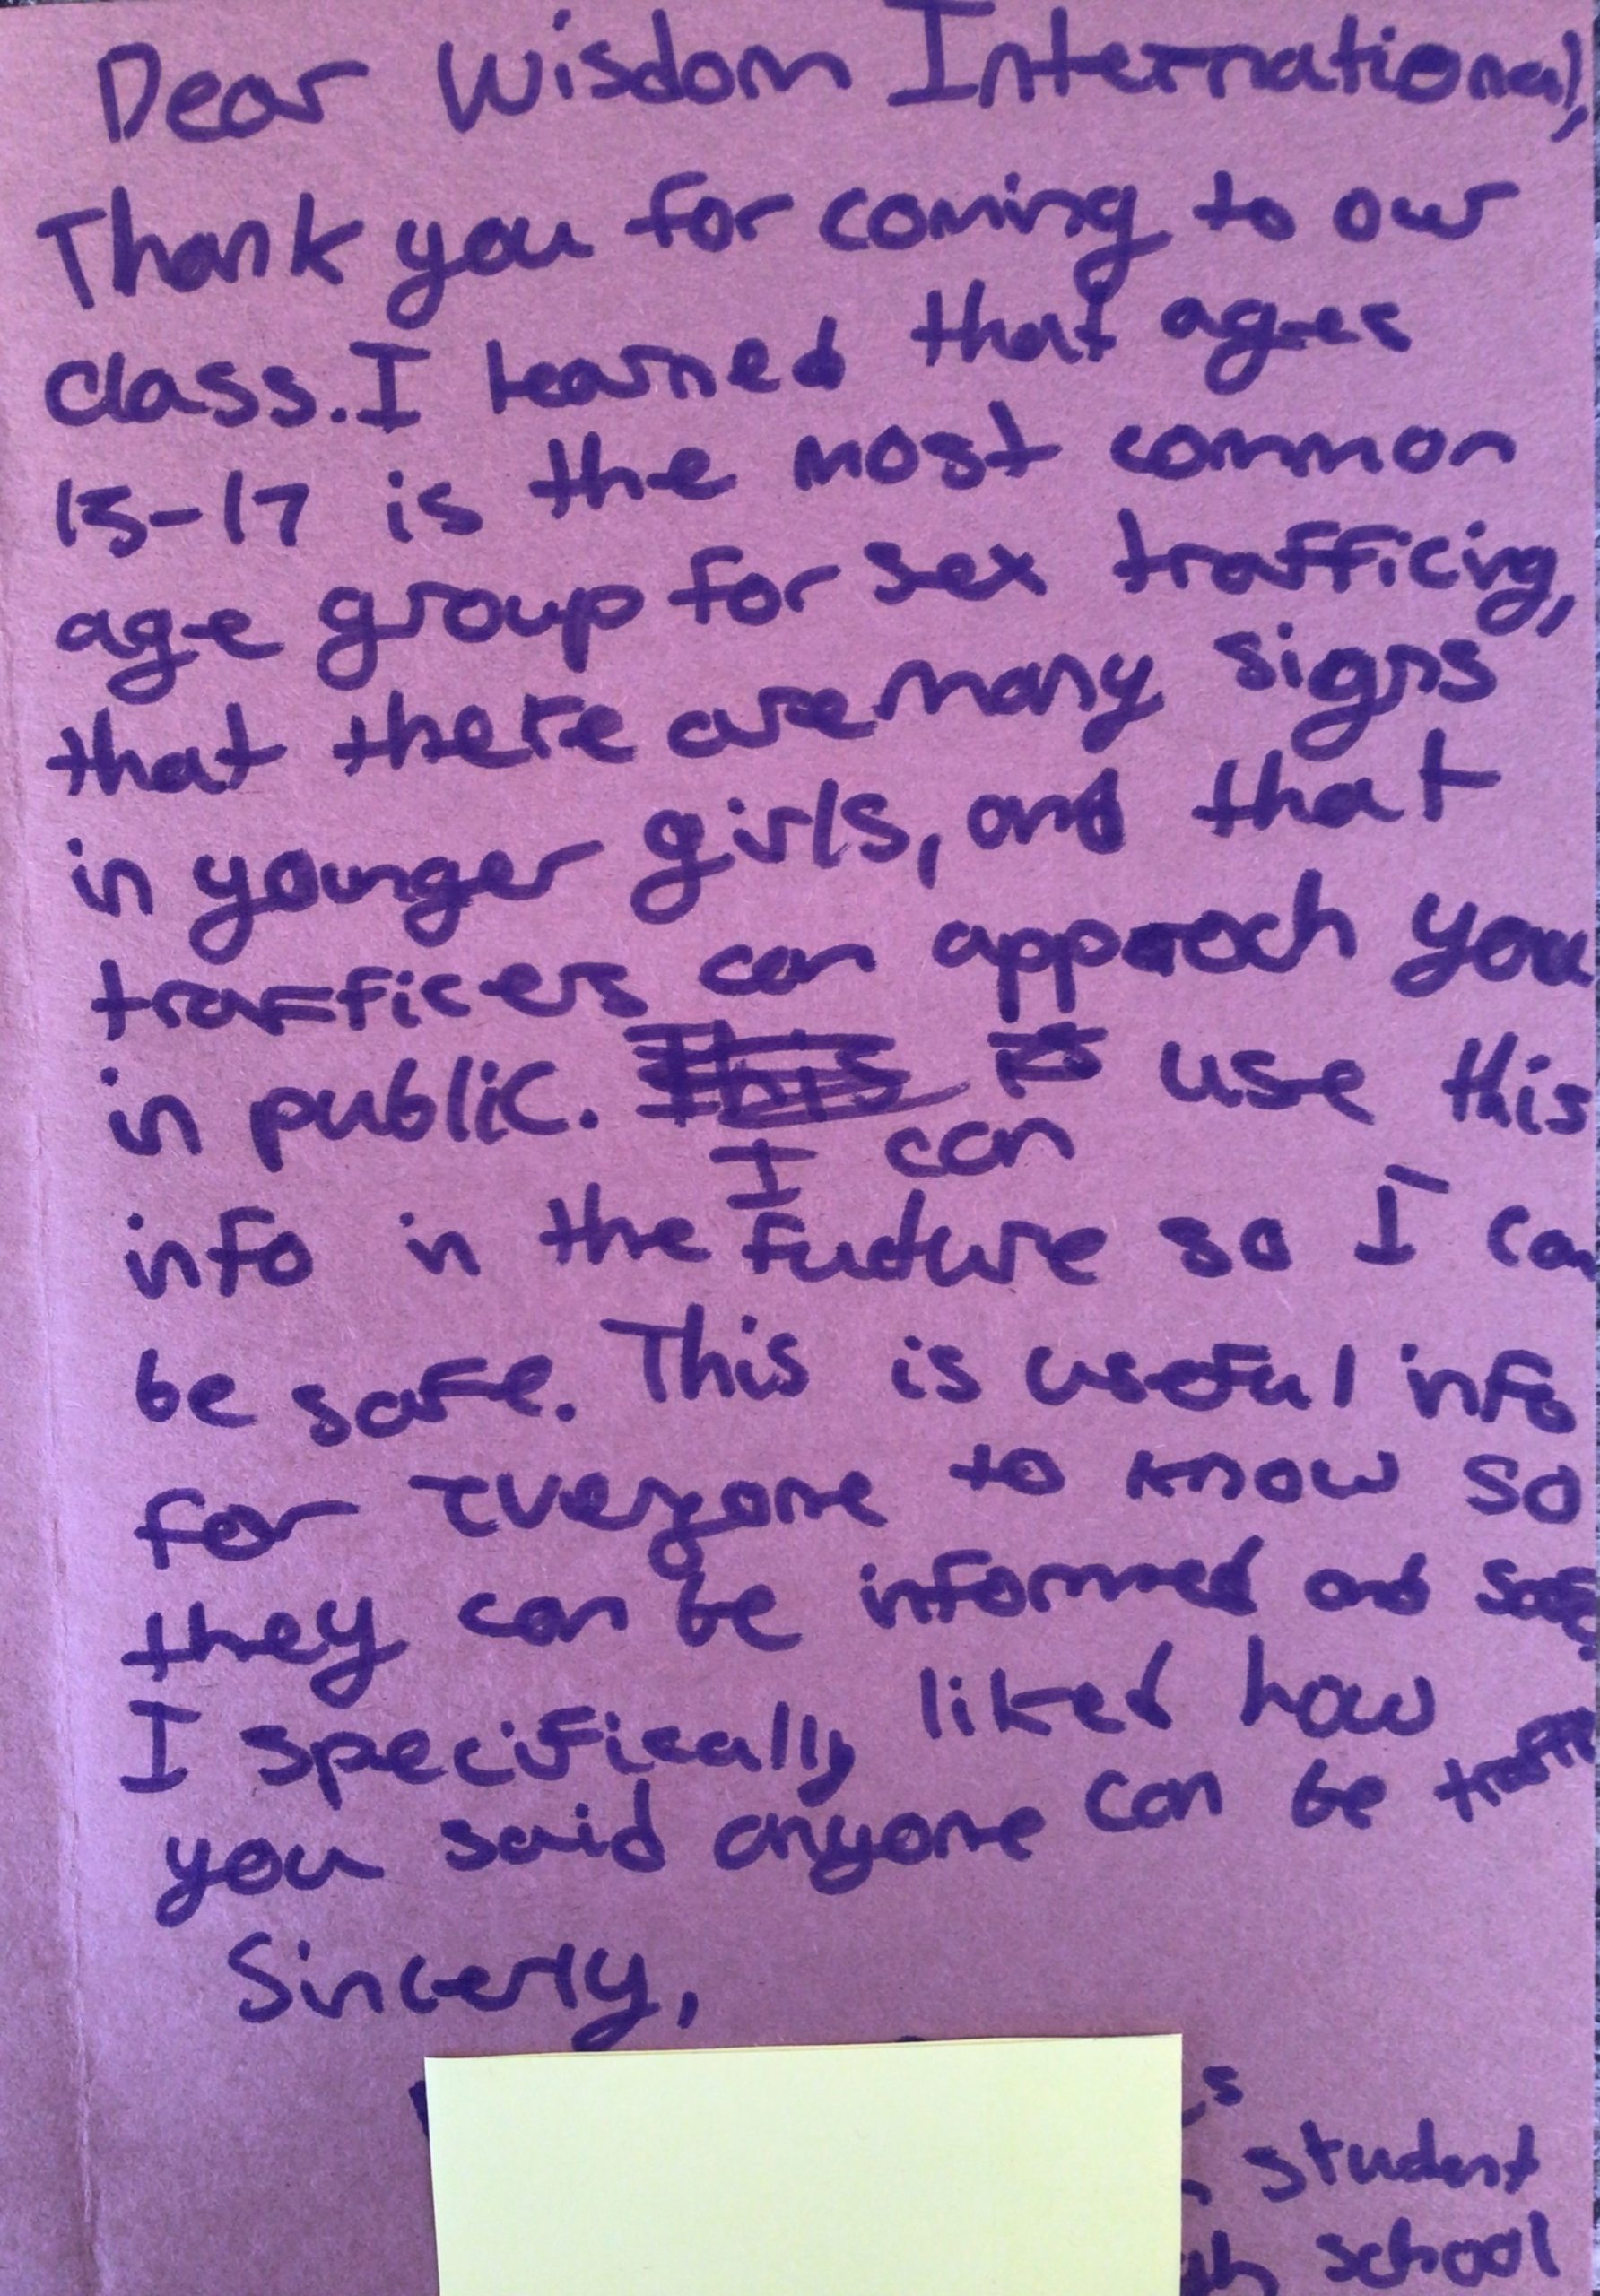 Dear Wisdom International,
Thank you for coming to our
class. I learned that ages
15-17 is the most common
age group for sex trafficing,
that there are many signs
in younger girls, and that
trafficers can approach you
in public. This is use this
I can
info in the future so I can
be safe. This is useful info
for everyone to know so
they can be informed and safe.
I specifically liked how
you said anyone can be
Sincerly,
s
student
school